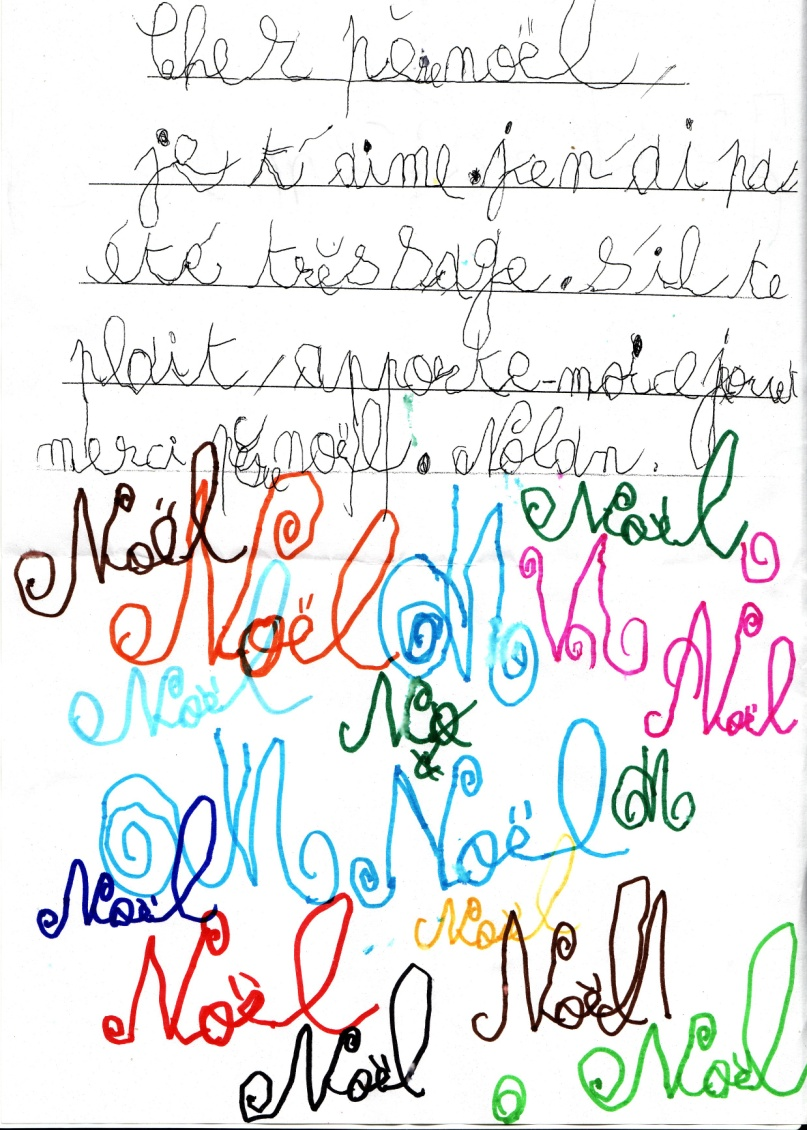 Cher père noël,
je t'aime. je n'ai pas
été très sage. S'il te
plait, apporte-moi
merci père noël. Nolan.
Noël
Noël
N
Noël
N
Noël
Noël
No
N
Noël
N
Noël
Noël
Noël
Noël
Noël
Noël